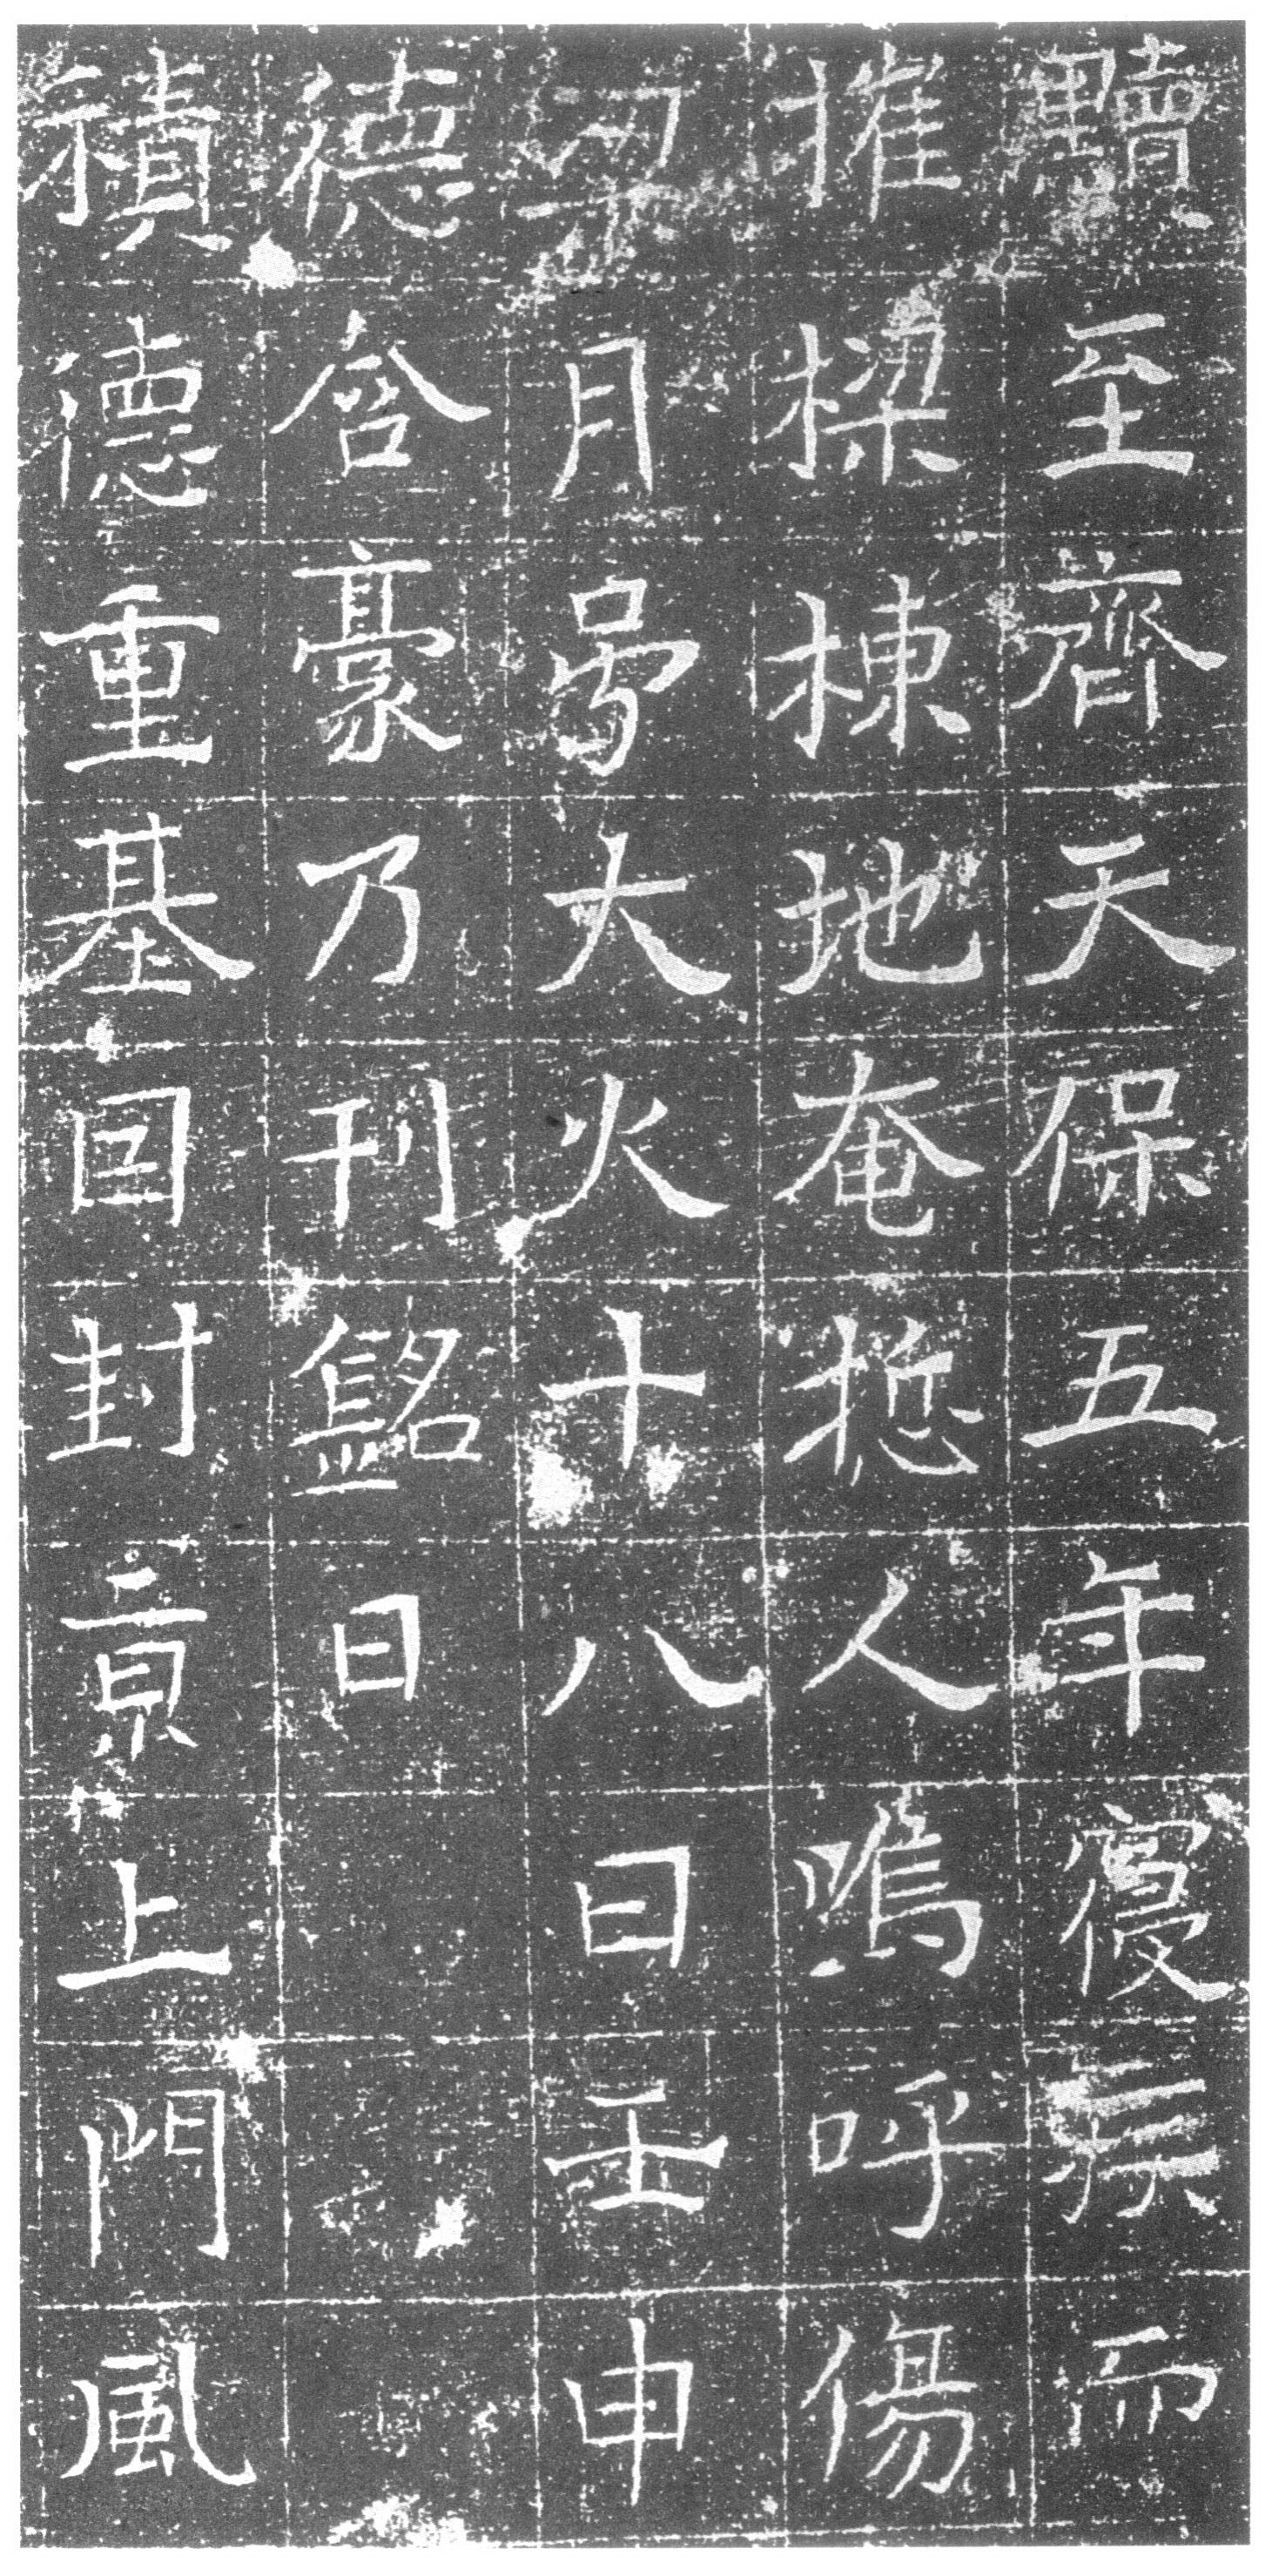 黷至齊天保五年寑疾而
摧樑棟地奄悊人嗚呼傷
月咼大火十八日壬申
德含豪乃刊盬曰
積德重基因封京上門風